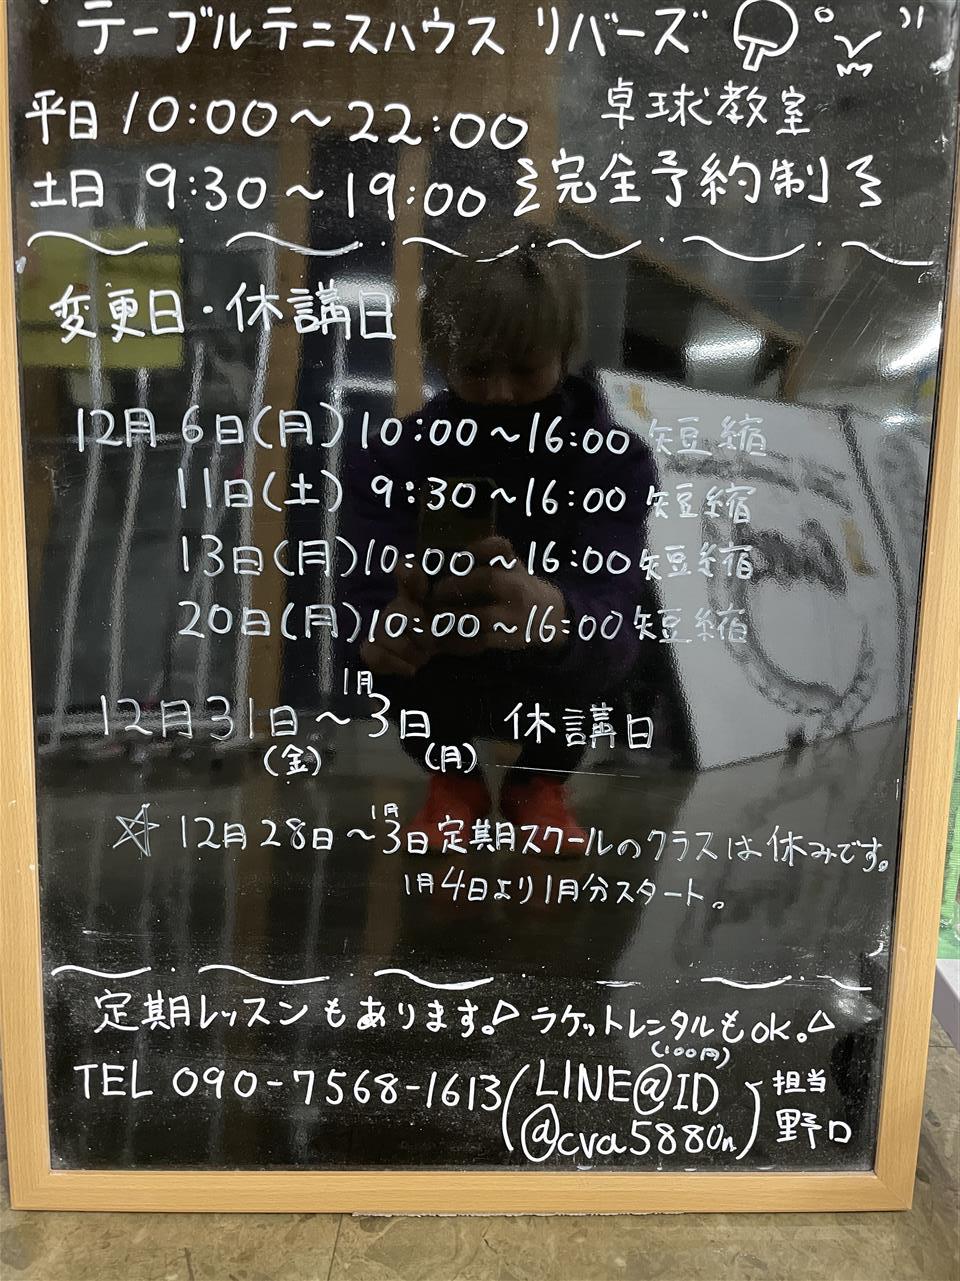 テーブルテニスハウス リバーズ
平日 10:00～22:00 卓球教室
土日 9:30～19:00 完全予約制
変更日・休講日
12月 6日(月) 10:00～16:00 短縮
11日(土) 9:30～16:00 短縮
13日(月) 10:00～16:00 短縮
20日(月) 10:00～16:00 短縮
12月31日(金)～1月3日(月) 休講日
☆ 12月28日～1月3日定期月スクールのクラスは休みです。
1月4日より1月分スタート。
定期レッスンもあります。♪ ラケットレンタルもok。♪
(100円)
TEL 090-7568-1613 (LINE@ID 担当
@cva5880n) 野口